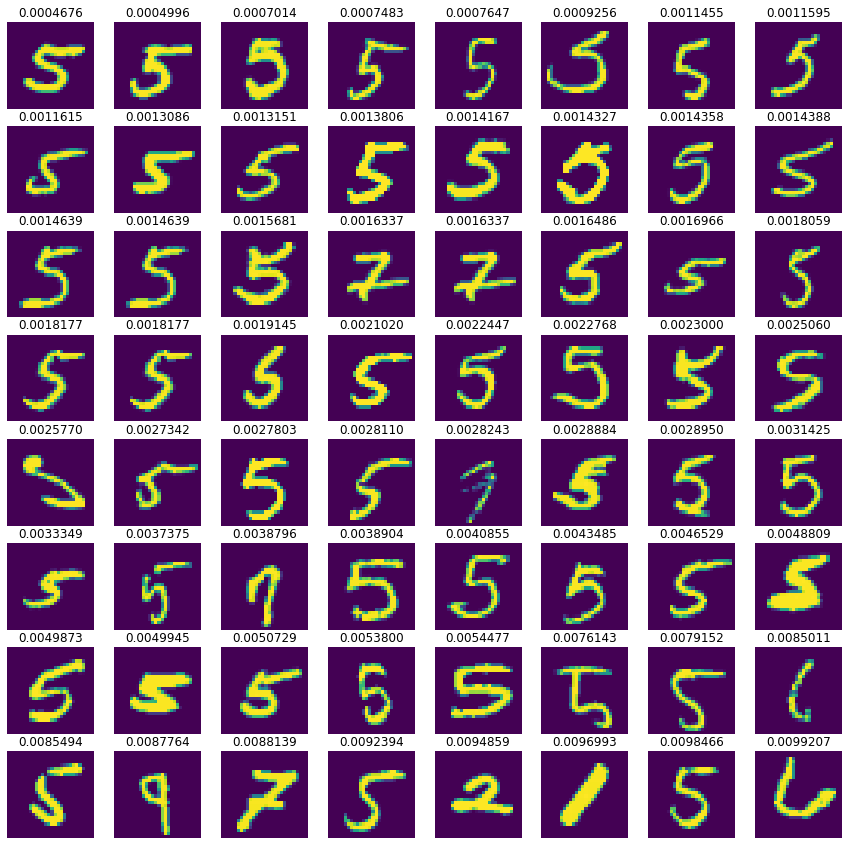 0.0004676 0.0004996 0.0007014 0.0007483 0.0007647 0.0009256 0.0011455 0.0011595
5 5 5 5 5 5 5 5
0.0011615 0.0013086 0.0013151 0.0013806 0.0014167 0.0014327 0.0014358 0.0014388
5 5 5 5 5 5 5 5
0.0014639 0.0014639 0.0015681 0.0016337 0.0016337 0.0016486 0.0016966 0.0018059
5 5 5 7 7 5 5 5
0.0018177 0.0018177 0.0019145 0.0021020 0.0022447 0.0022768 0.0023000 0.0025060
5 5 5 5 5 5 5 5
0.0025770 0.0027342 0.0027803 0.0028110 0.0028243 0.0028884 0.0028950 0.0031425
5 5 5 5 5 5
0.0033349 0.0037375 0.0038796 0.0038904 0.0040855 0.0043485 0.0046529 0.0048809
5 5 7 5 5 5 5
0.0049873 0.0049945 0.0050729 0.0053800 0.0054477 0.0076143 0.0079152 0.0085011
5 5 5 5 5 5
0.0085494 0.0087764 0.0088139 0.0092394 0.0094859 0.0096993 0.0098466 0.0099207
5 9 7 5 2 1 5 6